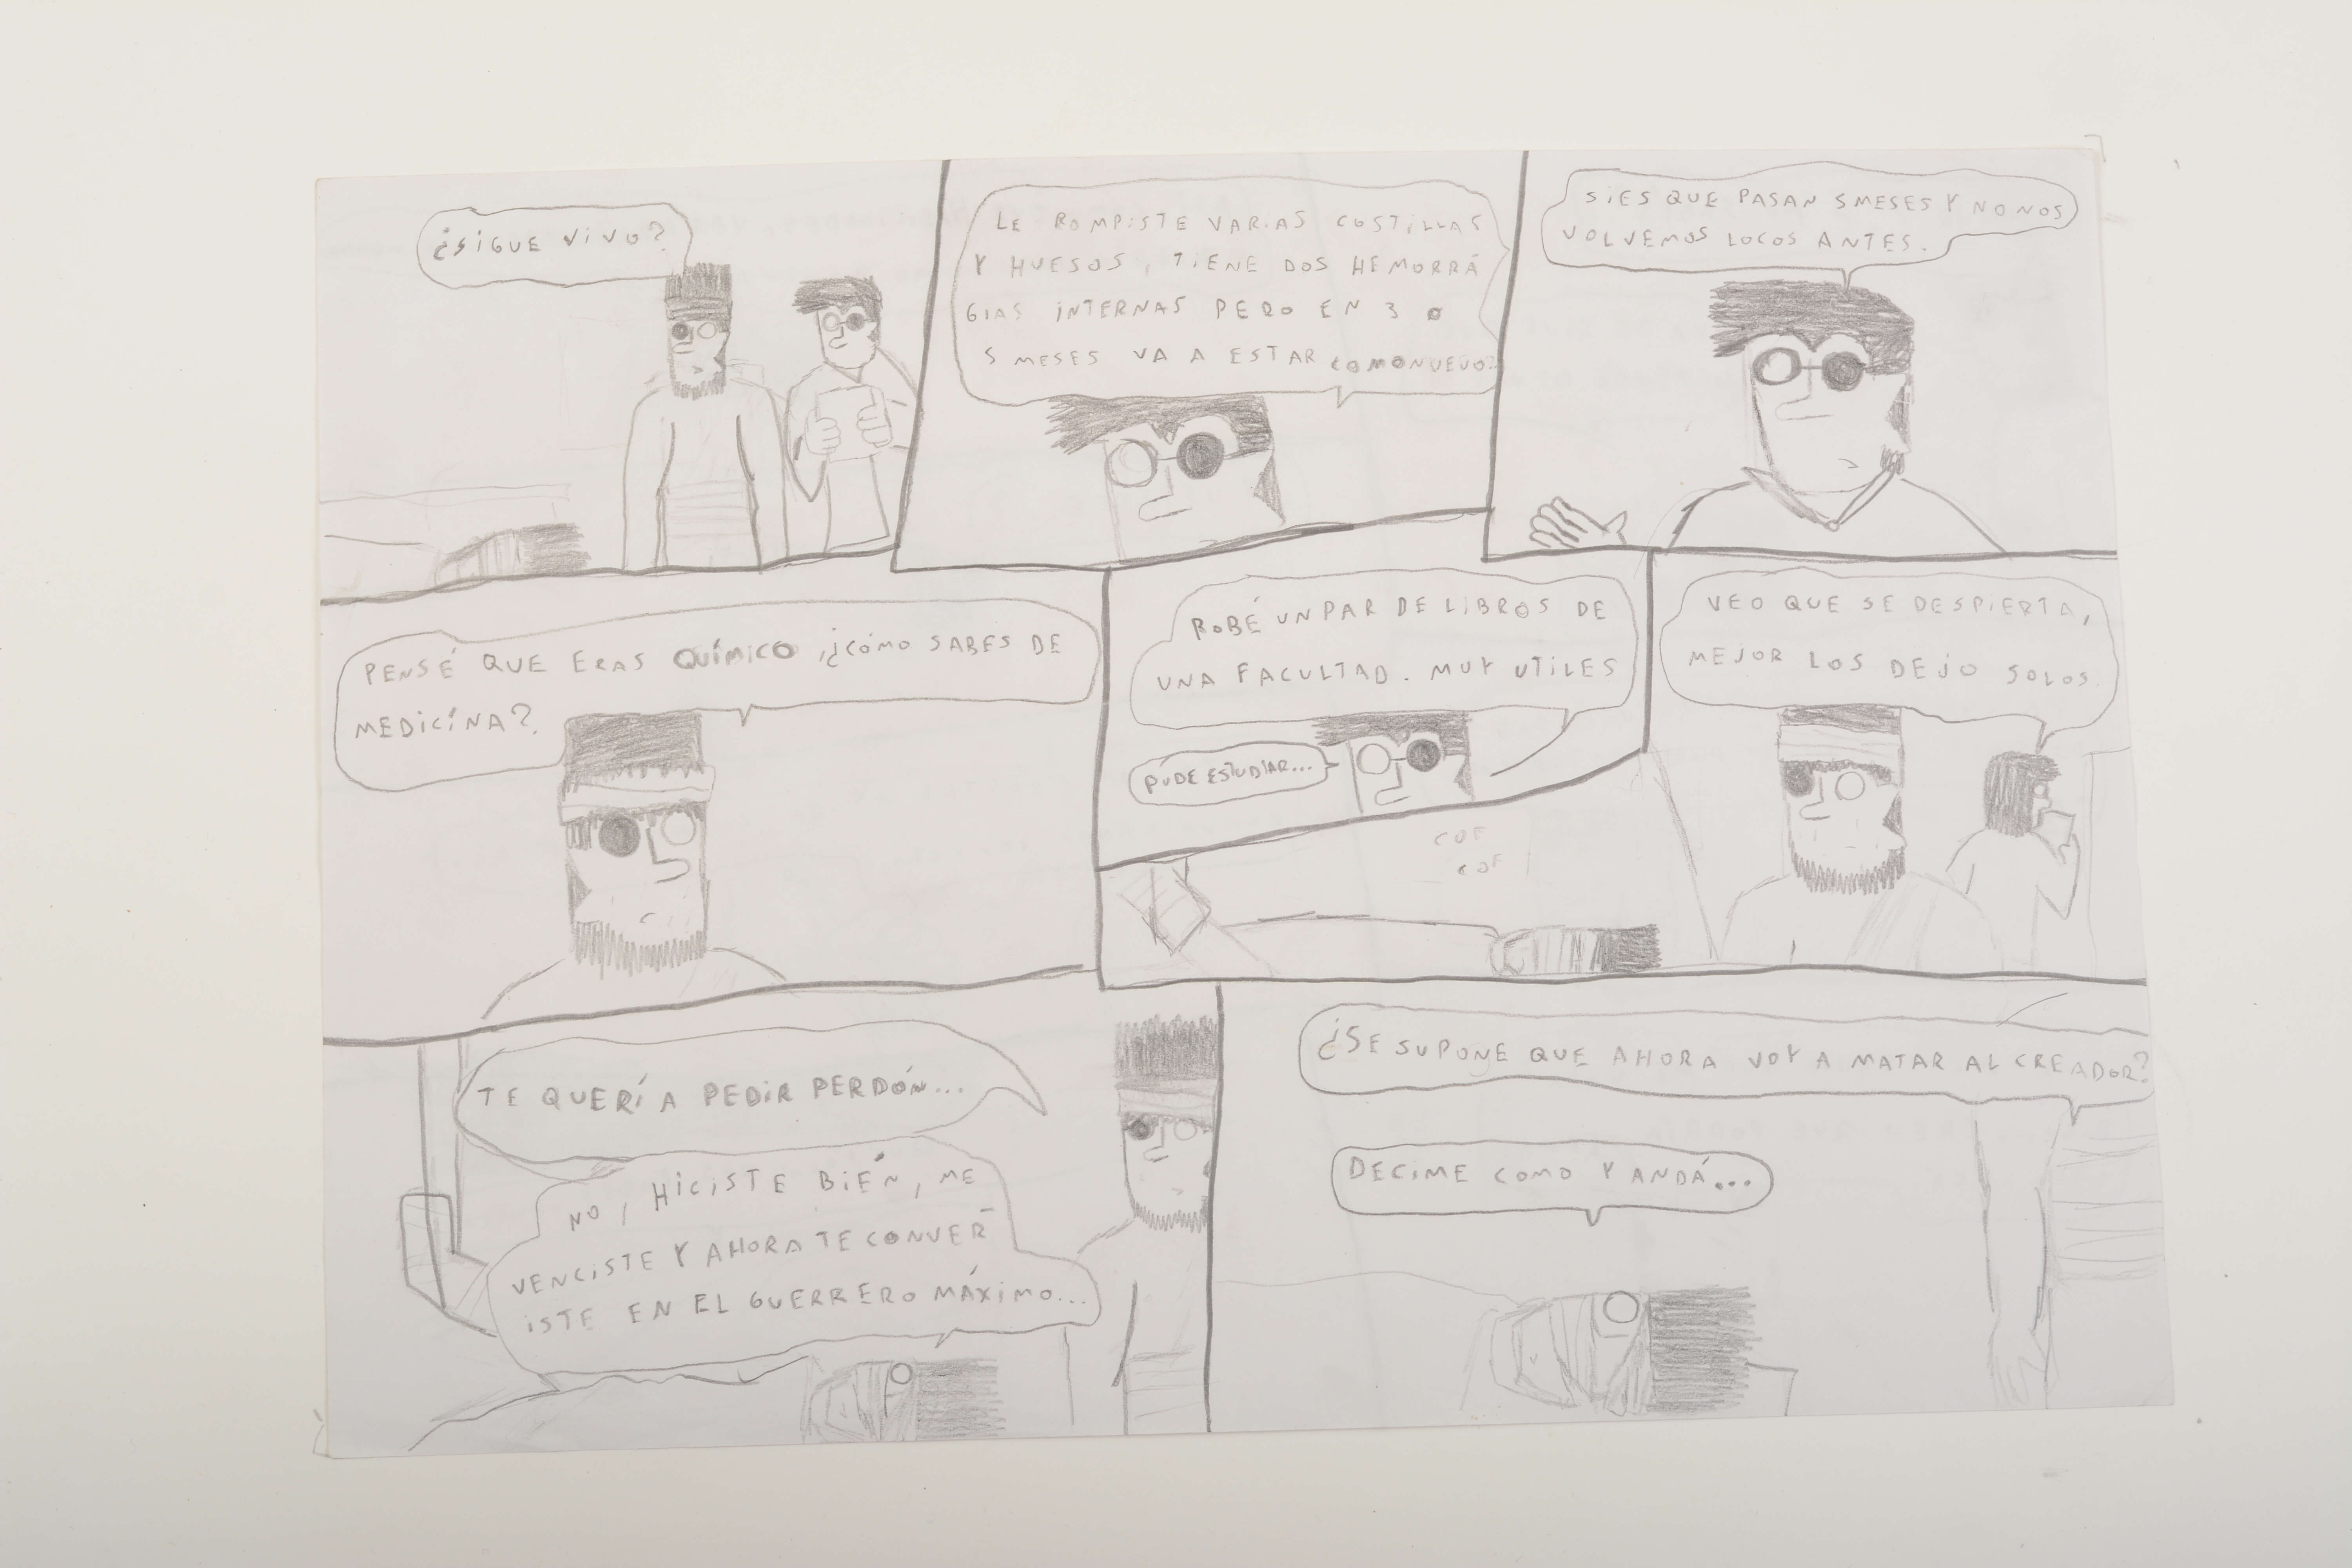 ¿SIGUE VIVO?
LE ROMPISTE VARIAS COSTILLAS
Y HUESOS, TIENE DOS HEMORRÁ
GIAS INTERNAS PERO EN 3 O
5 MESES VA A ESTAR COMO NUEVO.
SI ES QUE PASAN 5 MESES Y NO NOS
VOLVEMOS LOCOS ANTES.
PENSÉ QUE ERAS QUÍMICO, ¿CÓMO SABES DE
MEDICÍNA?
ROBÉ UN PAR DE LIBROS DE
UNA FACULTAD. MUY UTILES
PUDE ESTUDIAR...
COF
COF
VEO QUE SE DESPIERTA,
MEJOR LOS DEJO SOLOS.
TE QUERÍA PEDIR PERDÓN...
NO, HICISTE BIÉN, ME
VENCISTE Y AHORA TE CONVER
ISTE EN EL GUERRERO MÁXIMO...
¿SE SUPONE QUE AHORA VOY A MATAR AL CREADOR?
DECIME COMO Y ANDÁ...